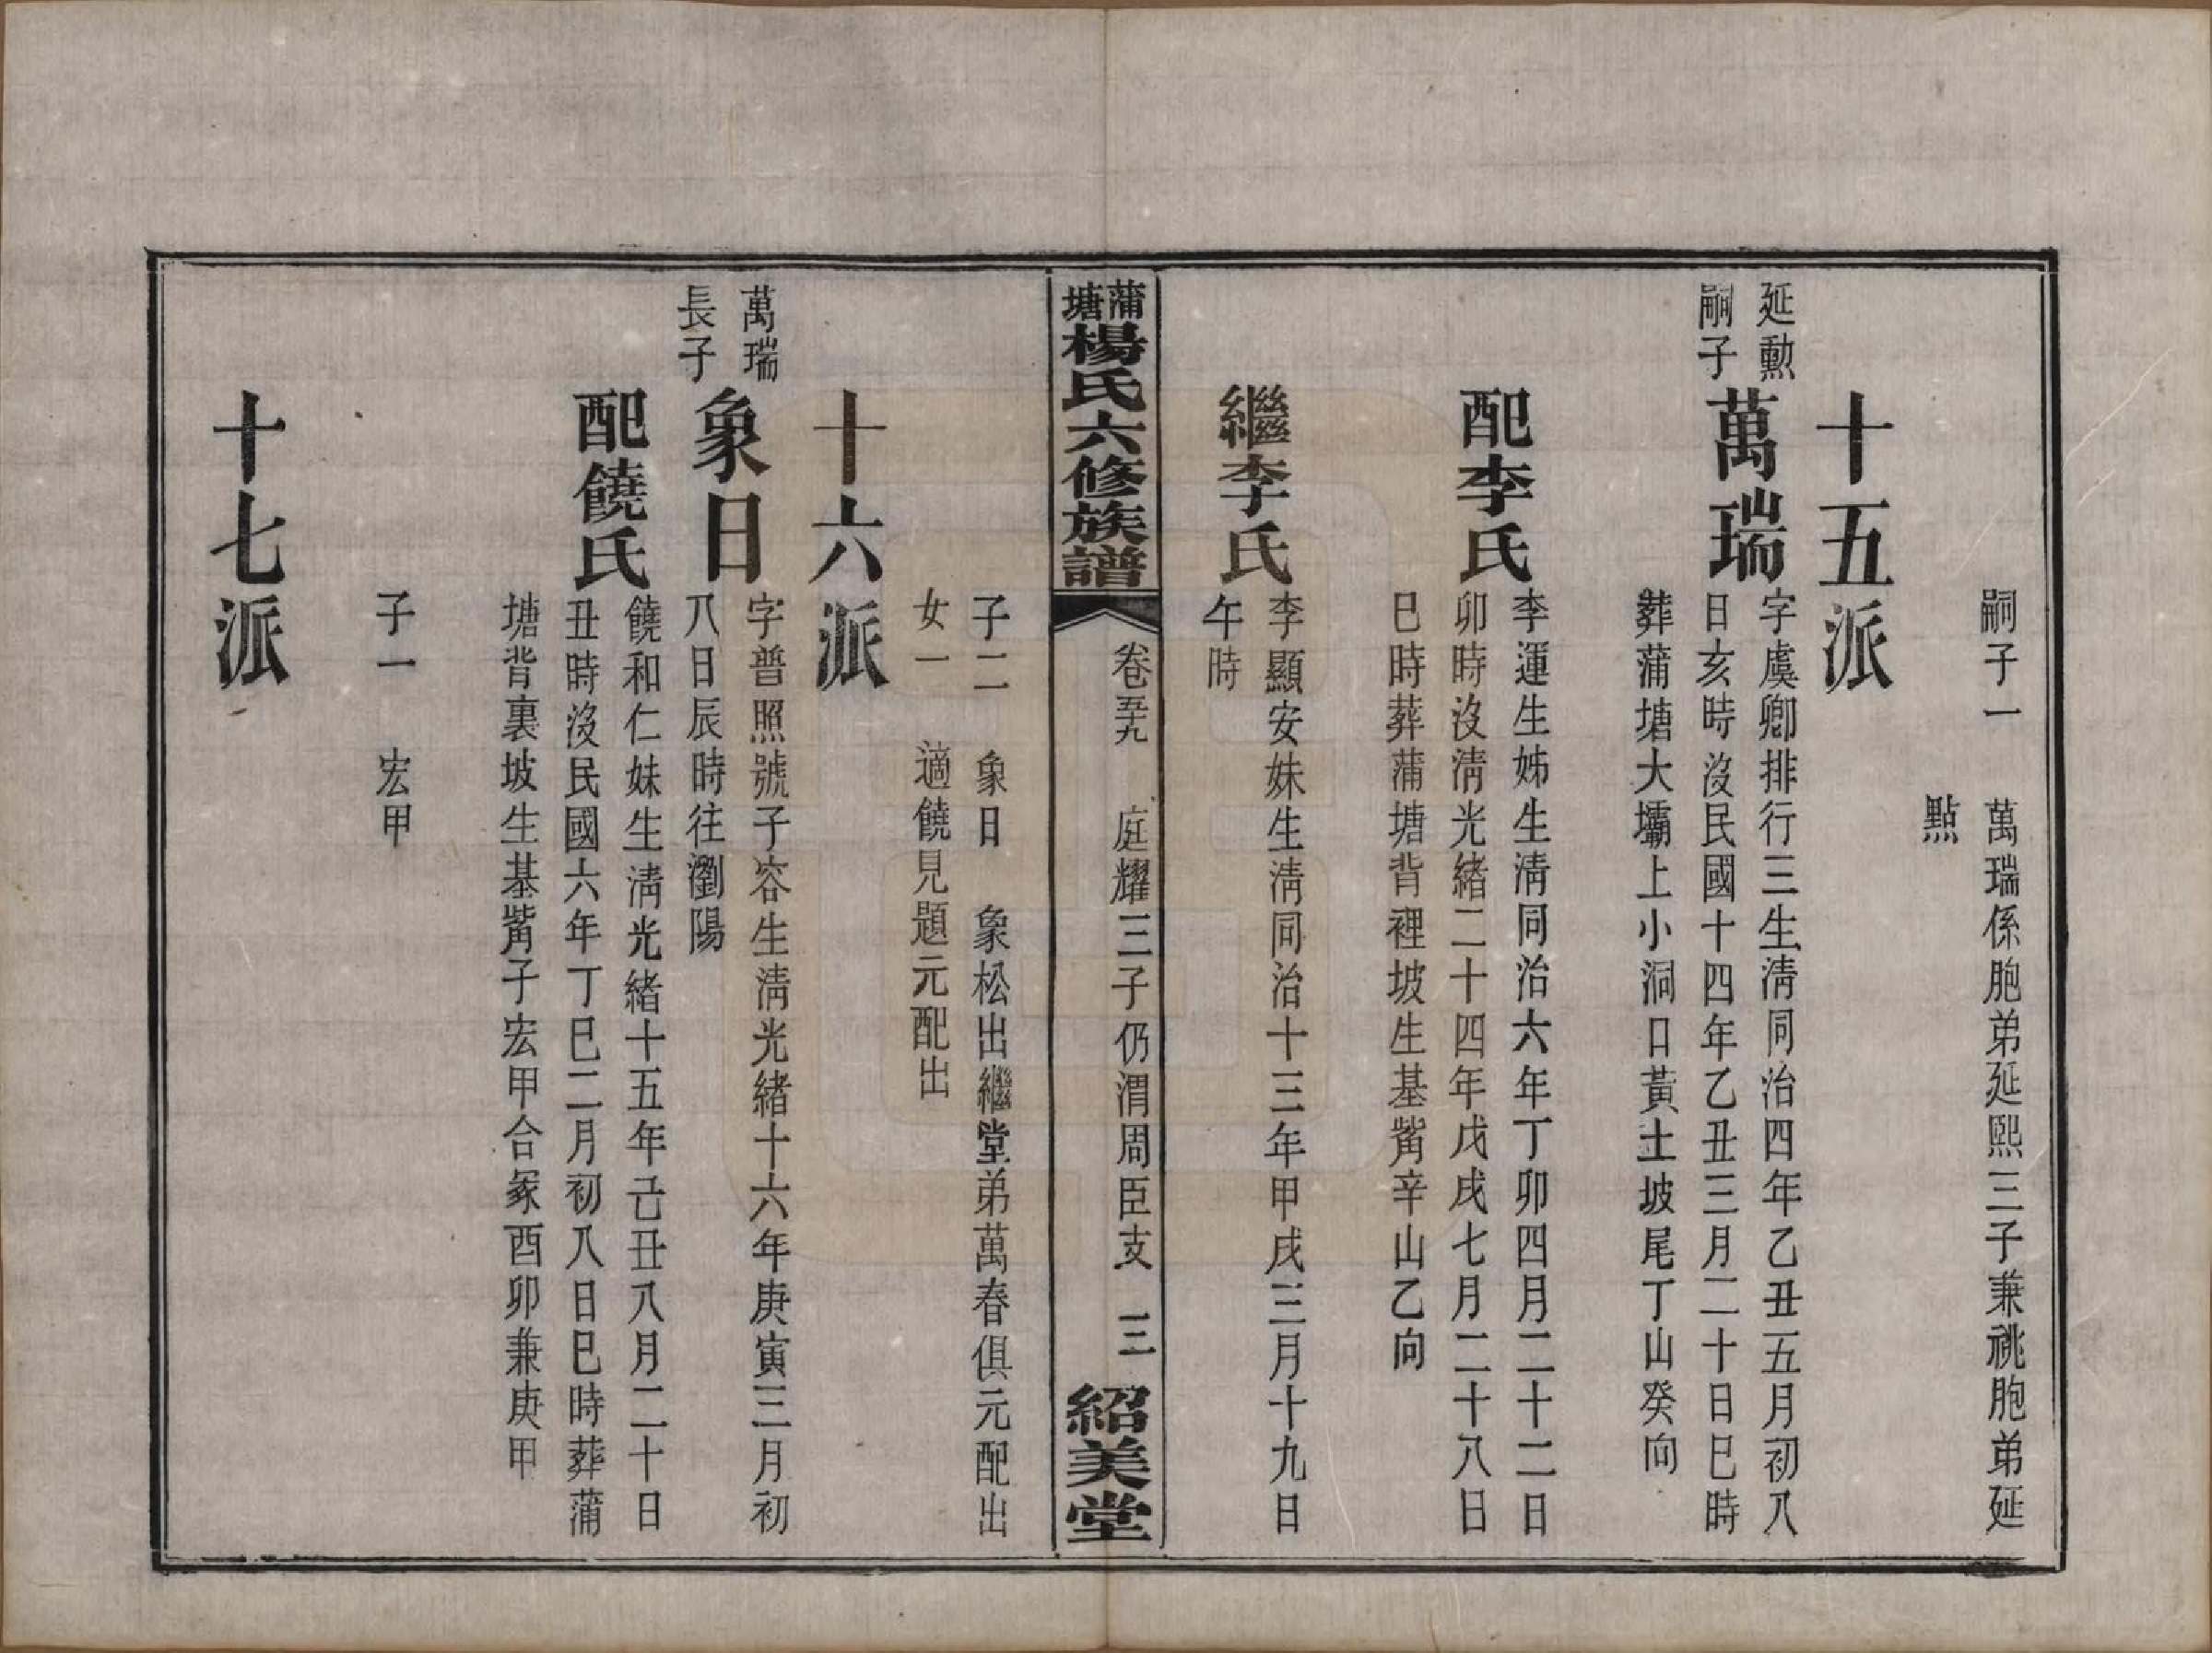 嗣子一　萬瑞係胞弟延熙三子兼祧胞弟延
㸃
十五派
延勲
嗣子
萬瑞
字虞卿排行三生淸同治四年乙丑五月初八
日亥時沒民國十四年乙丑三月二十日巳時
葬蒲塘大壩上小洞口黃土坡尾丁山癸向
配李氏
李運生姊生淸同治六年丁卯四月二十二日
卯時沒淸光緒二十四年戊戌七月二十八日
巳時葬蒲塘背裡坡生基嘴辛山乙向
繼李氏
李顯安妹生淸同治十三年甲戌三月十九日
午時
蒲塘楊氏六修族譜
卷五九　庭耀三子仍渭周臣支　三
紹美堂
子二　象日　象松出繼堂弟萬春俱元配出
女一　適饒見題元配出
十六派
萬瑞
長子
象日
字普照號子容生淸光緒十六年庚寅三月初
八日辰時往瀏陽
配饒氏
饒和仁妹生淸光緒十五年己丑八月二十日
丑時沒民國六年丁巳二月初八日巳時葬蒲
塘背裏坡生基嘴子宏甲合冢酉卯兼庚甲
子一　宏甲
十七派